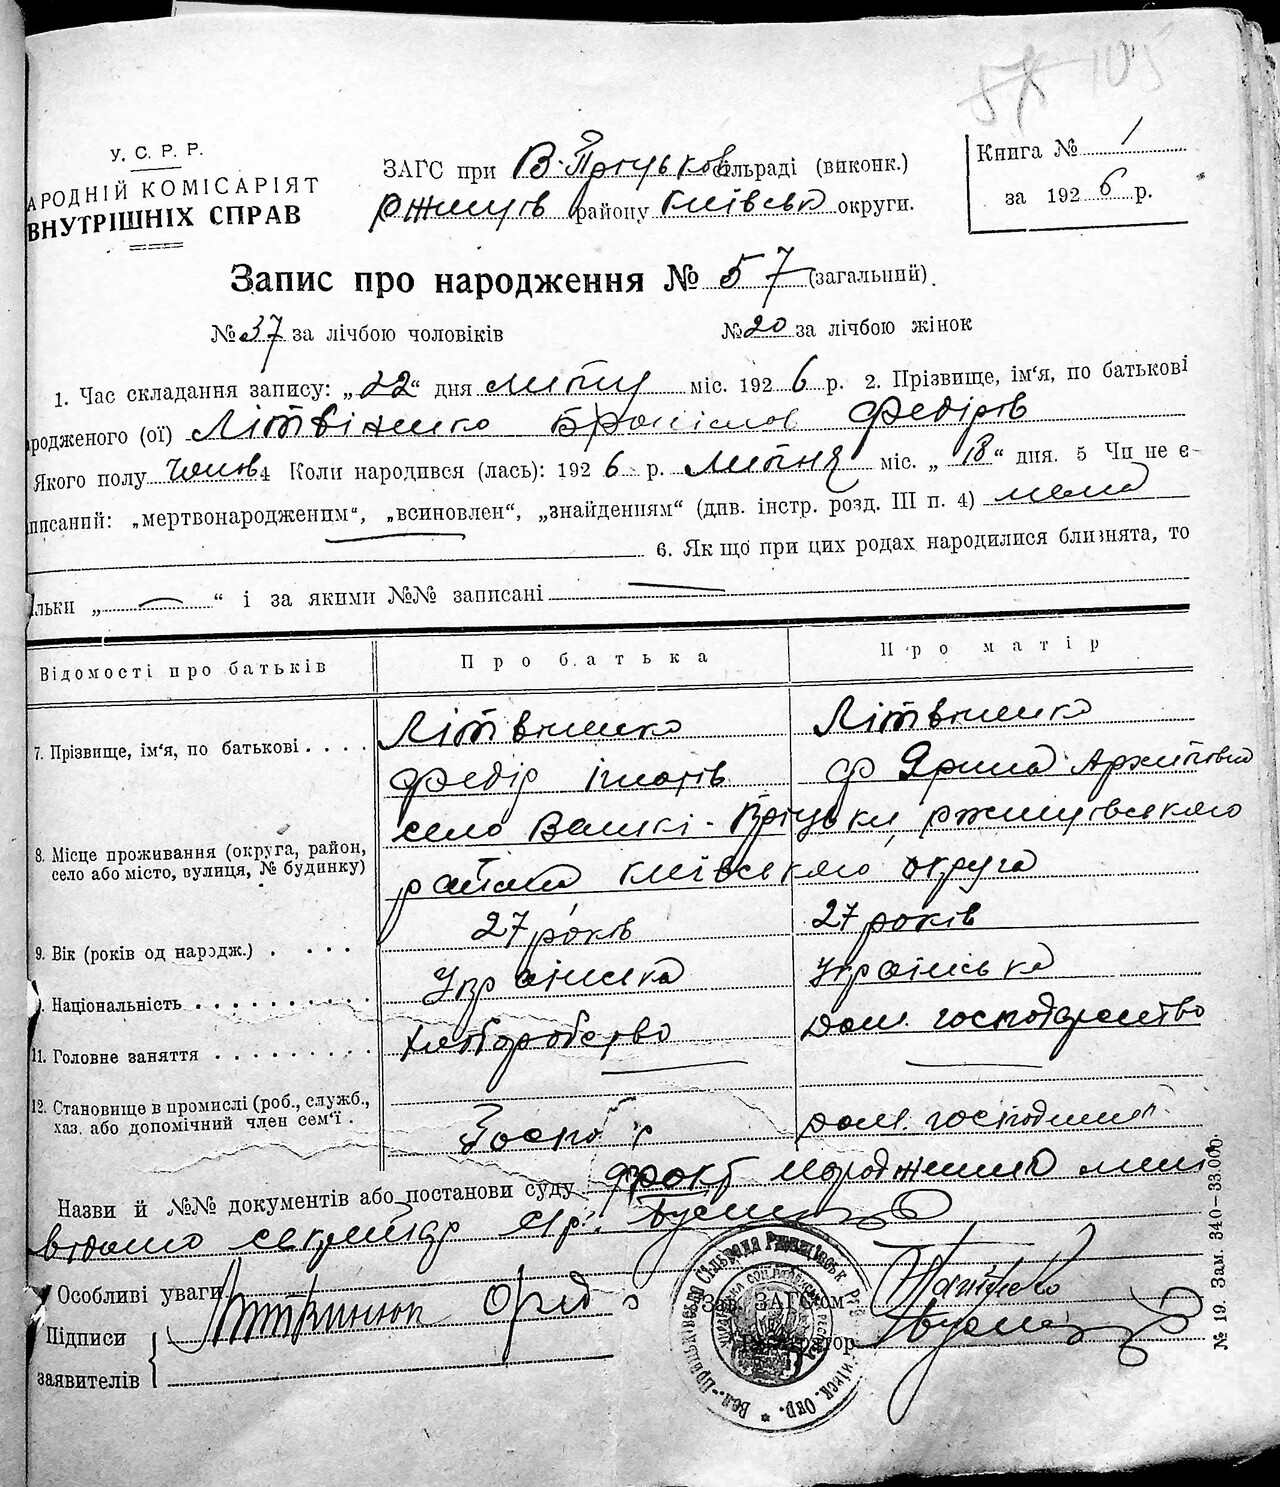 57 105
У. С. Р. Р.
АРОДНІЙ КОМІСАРІЯТ
ВНУТРІШНІХ СПРАВ
ЗАГС при В-Пріцьков сільраді (виконк.)
Ржищів району Київськ округи.
Книга № 1
за 1926 р.
Запис про народження № 57 (загальний).
№ 37 за лічбою чоловіків № 20 за лічбою жінок
1. Час складання запису: „22“ дня липня міс. 1926 р. 2. Прізвище, ім‘я, по батькові
ародженого (ої) Літвіненко Броніслов Федірів
Якого полу чолов 4 Коли народився (лась): 1926 р. Липня міс. „18“ дня. 5 Чи не є
писаний: „мертвонародженим“, „всиновлен“, „знайденням“ (див. інстр. розд. III п. 4) нема
6. Як що при цих родах народилися близнята, то
ільки „ “ і за якими №№ записані
Відомості про батьків Про батька Про матір
7. Прізвище, ім‘я, по батькові . . . .
Літвиненко Літвиненко
Федір Ігнатів Ярина Архипівна
8. Місце проживання (округа, район,
село або місто, вулиця, № будинку)
село Великі-Пріцьки, Ржищівського
района Київського округа
9. Вік (років од народж.) . . . . 27 років 27 років
. Національність . . . . . . . . . Українська Українська
11. Головне заняття . . . . . . . . . Хліборобство Дом. господарство
12. Становище в промислі (роб., служб.,
хаз. або допомічний член сем‘ї .
Господар дом. господиня
Назви й №№ документів або постанови суду факт народження мині
відомо секретар
Особливі уваги
Підписи
заявителів
Зав. ЗАГС‘ом
Реєстратор
Вел.-Прицьківсько Сільрада Ржищівськ Київск. Окр.
№ 19. Зам. 340—33.000.